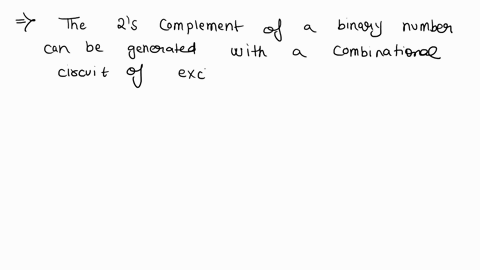 ⇒ The 2's complement of a binary number
can be generated with a combinational
circuit of exc